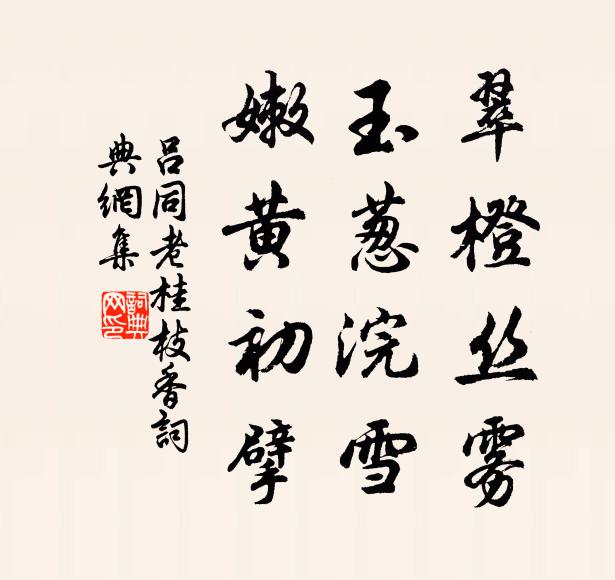 翠橙丝雾
玉葱浣雪
嫩黄初擘
吕同老桂枝香詞
典網集
詞典网印